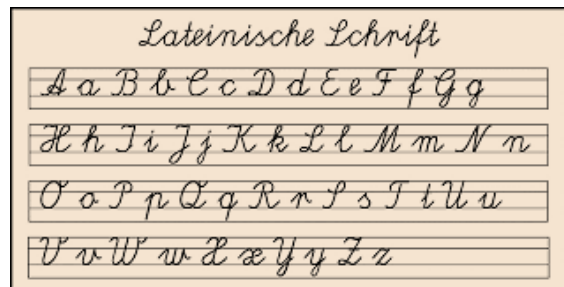 Lateinische Schrift
A a B b C c D d E e F f G g
H h I i J j K k L l M m N n
O o P p Q q R r S s T t U u
V v W w X x Y y Z z